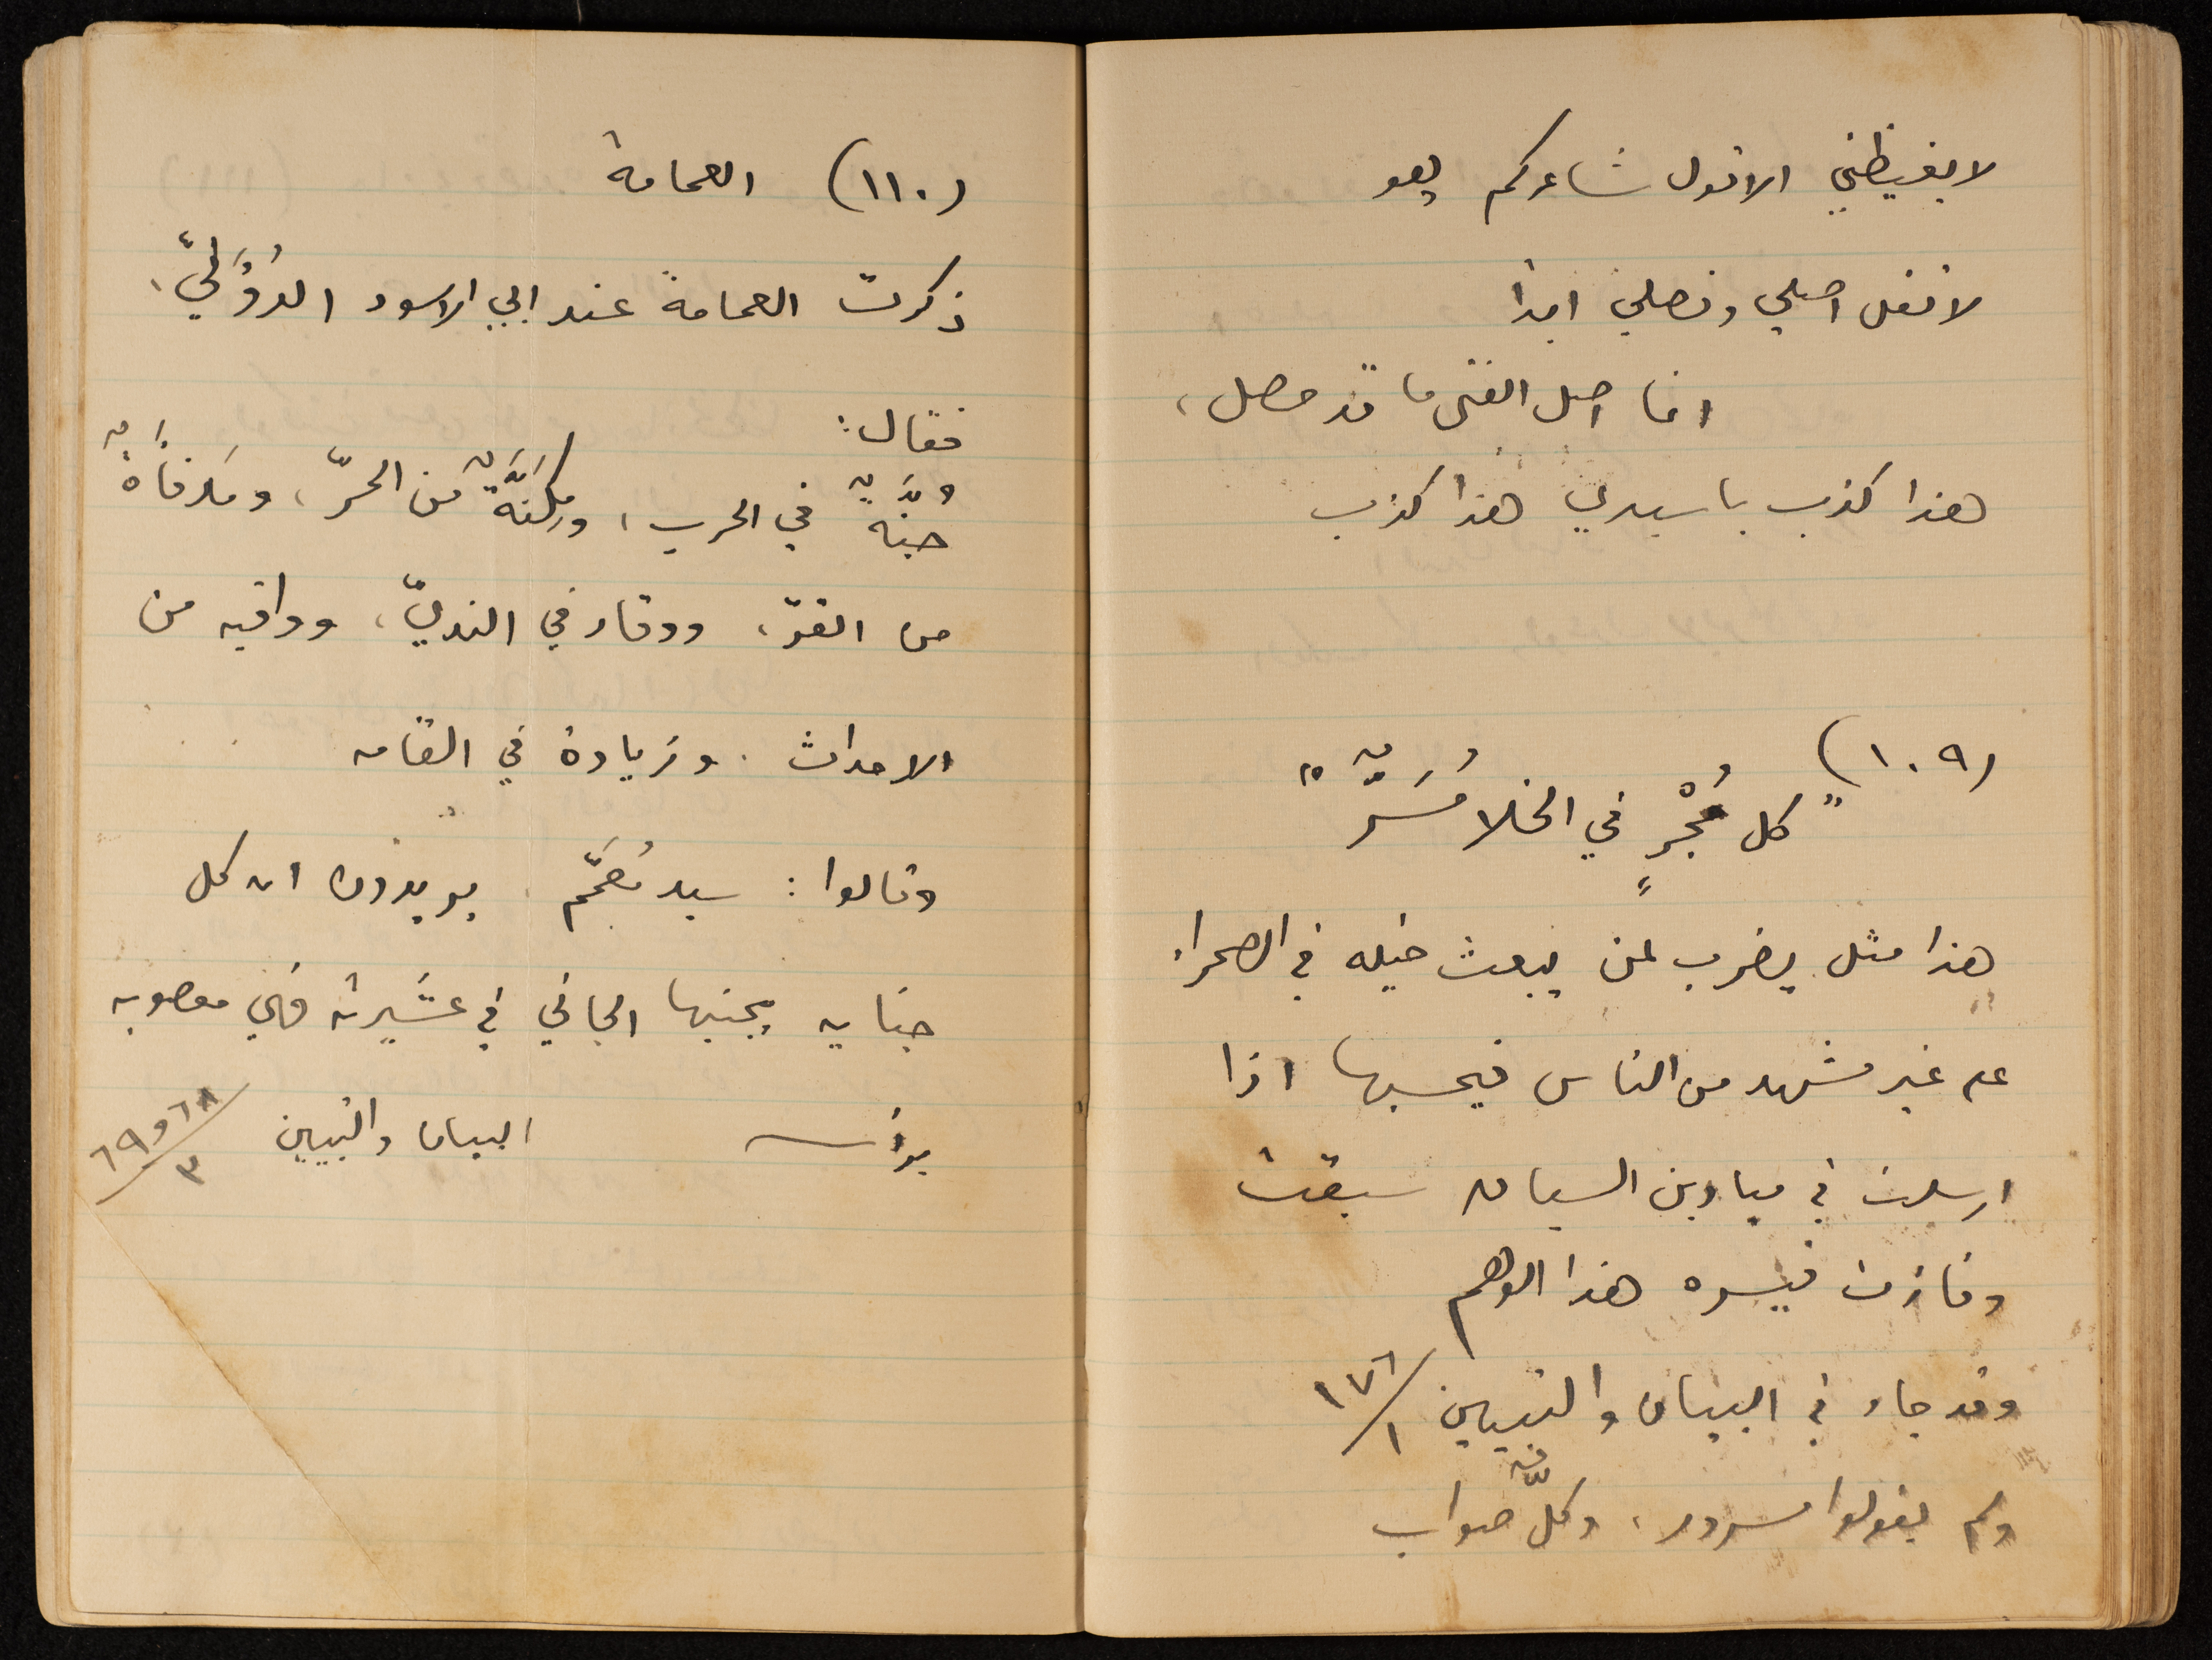 لا يغيظني الا قول شاعركم يهو
لا تقل اصلي وفصلي ابدا
انما اصل الفتى ما قد حصل،
هذا كذب يا سيدي هذا كذب
(١٠٩)
"كل مُجْرٍ في الخلا مُسَرٌّ"
هذا مثل يضرب لمن يبعث خيله في الصحراء
على غير مشهد من الناس فيحسبها اذا
ارسلت في ميادين السباق سبقت
وفازت فيسره هذا الوهم
وقد جاء في البيان والتبيين ١٧٦/١
ولم يقولوا مسرور، وكلٌّ صواب
(١١٠) العمامة
ذكرت العمامة عند ابي الاسود الدُؤَليّ،
فقال:
جُنَّةٌ في الحرب، ومِكَنَّةٌ من الحرّ، ومَدفأَةٌ
من القرّ، ووقار في النديّ، وواقيه من
الاحداث. وزيادة في القامه
وقالوا: سيد مُعَمَّم. يريدون ان كل
جنايه يجنيها الجاني في عشيرته فهي معصوبه
برأسه البيان والتبيين ٦٨ و ٦٩/٣